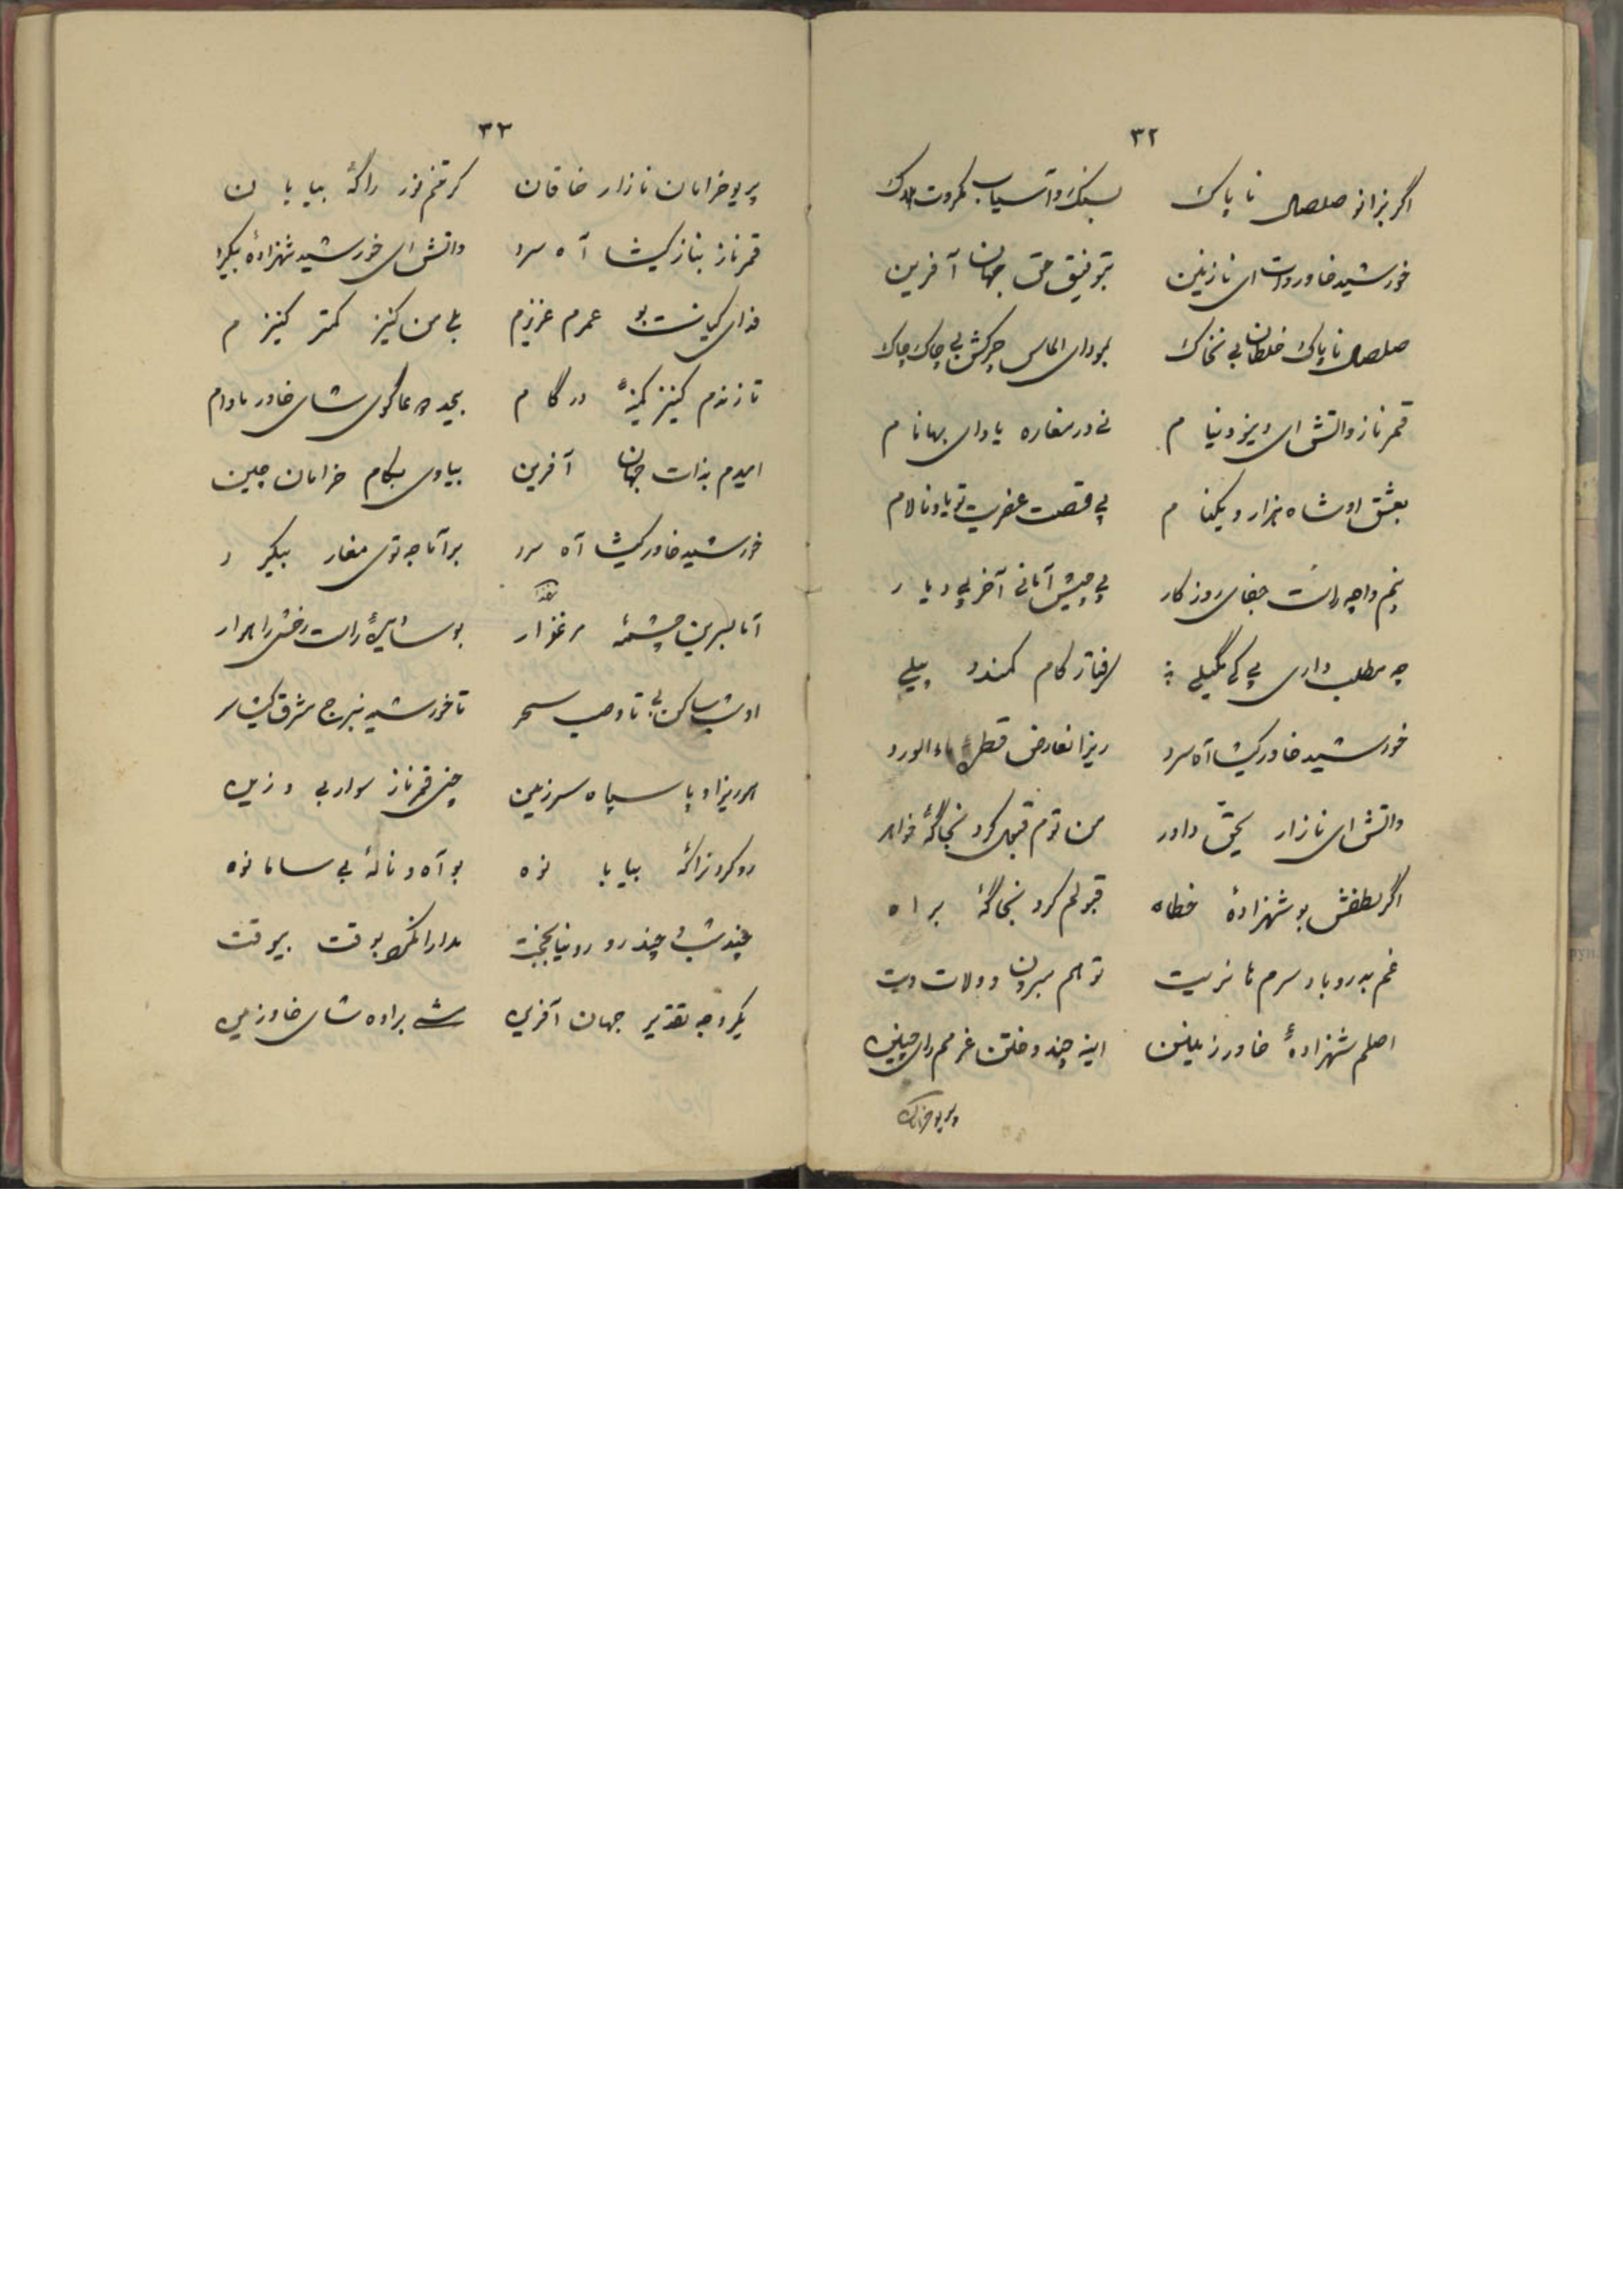 ٣٢
اگر بزانو صلصال ناپاک بسنک و آسیاب مکروت هلاک
خورشید خاور وات ای نازنین بتوفیق حق جهان آفرین
صلصال ناپاک غلطان بی نخاک بودای الماس جرکش بی چاک چاک
قمرناز واتش ای ویزو نیام نی در مغاره یاوای بهانام
بعشق او شاه هزار و یکنام پی قصت عفریت تو یاونالام
پنم واچه راست جفای روزکار پی چیش آمانی آخر پی دیار
چه مطلب داری پی کی مگیلی گرفتار کام کمند و پیلی
خورشید خاور کیشا آه سرد ریزا نعارض قطرهٔ ماء الورد
واتش ای نازار بحق داور من توم قبول کرد نجاگهٔ خواهر
اگر لطفش بو شهزادهٔ خطاه قبولم کرد نجاگهٔ براه
غم به رو باد سرم تا نریت تو هم مبرون و ولات ویت
اصلم شهزادهٔ خاور زمینن اینه چند وختن عزمم رای چینن
وپریو خرامان
٣٣
پریو خرامان نازار خاقان کرتنم نور راگهٔ بیابان
قمرناز بناز کیشا آه سرد واتش ای خورشید شهزادهٔ بیکرد
فدای کیانت بو عمرم عزیزم بلی من کنیز کمتر کنیزم
تا زندم کنیز کمینهٔ درگام بجد دعاگوی شای خاور مادام
امیدم بذات جهان آفرین بیاوی بکام خرامان چین
خورشید خاور کیشا آه سرد بر آما جه توی مغار بیکرد
آما لبرین چشمهٔ مرغزار بوسایهٔ رات رخش راهوار
اوشب ساکن بی تا وصب سحر تا خورشید نبرج مشرق کیشا سر
هوریزا و پا سپاه سرزمین چنی قمرناز سوار بی و زین
رو کرد نراگهٔ بیابانوه بو آه و نالهٔ بی سامانوه
چند شب چند رو رو نیا بجخت مدارا نکرد بوقت بیوقت
یکرو جه تقدیر جهان آفرین شی براوه شای خاور زمین